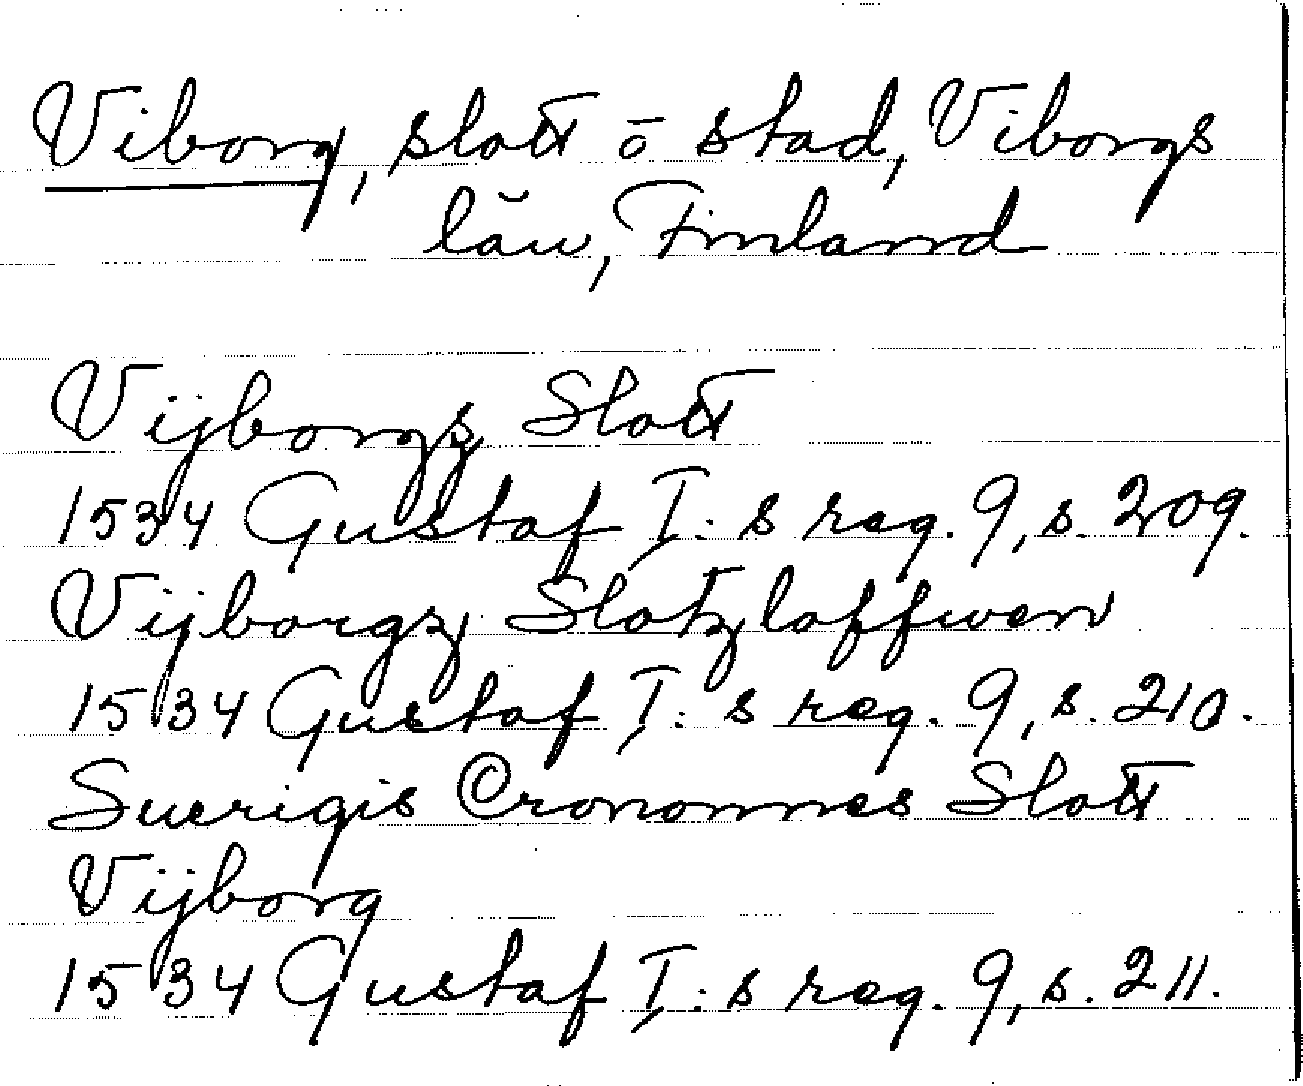 Viborg, slott ō stad, Viborgs
län, Finland
Vijborgz Slott
1534 Gustaf I:s reg. 9, s. 209.
Vijborgz Slotzloffwen
1534 Gustaf I:s reg. 9, s. 210.
Suerigis Cronomnes Slott
Vijborg
1534 Gustaf I:s reg. 9, s. 211.